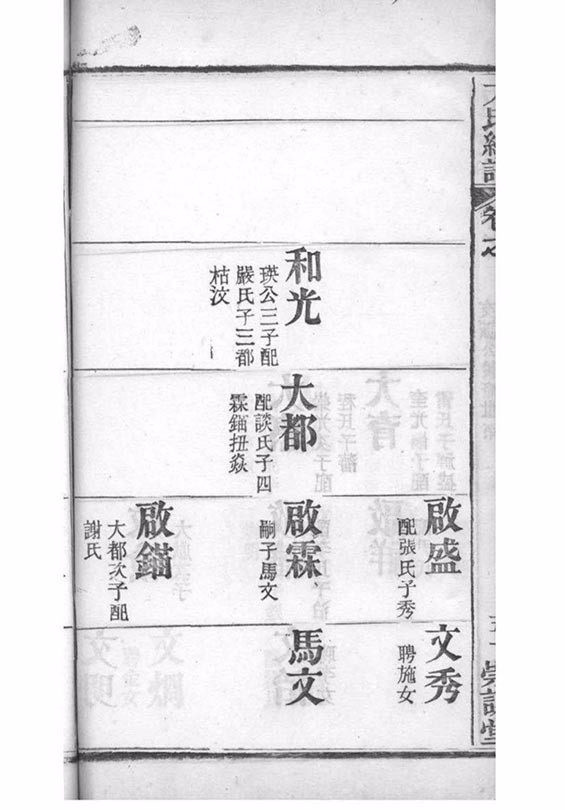 氏
卷
和光
瑛公三子配
嚴氏子三都
枯汶
大都
配談氏子四
霖錨扭焱
啟盛
配張氏子秀
啟霖
嗣子馬文
啟錨
大都次子配
謝氏
文秀
聘施女
馬文